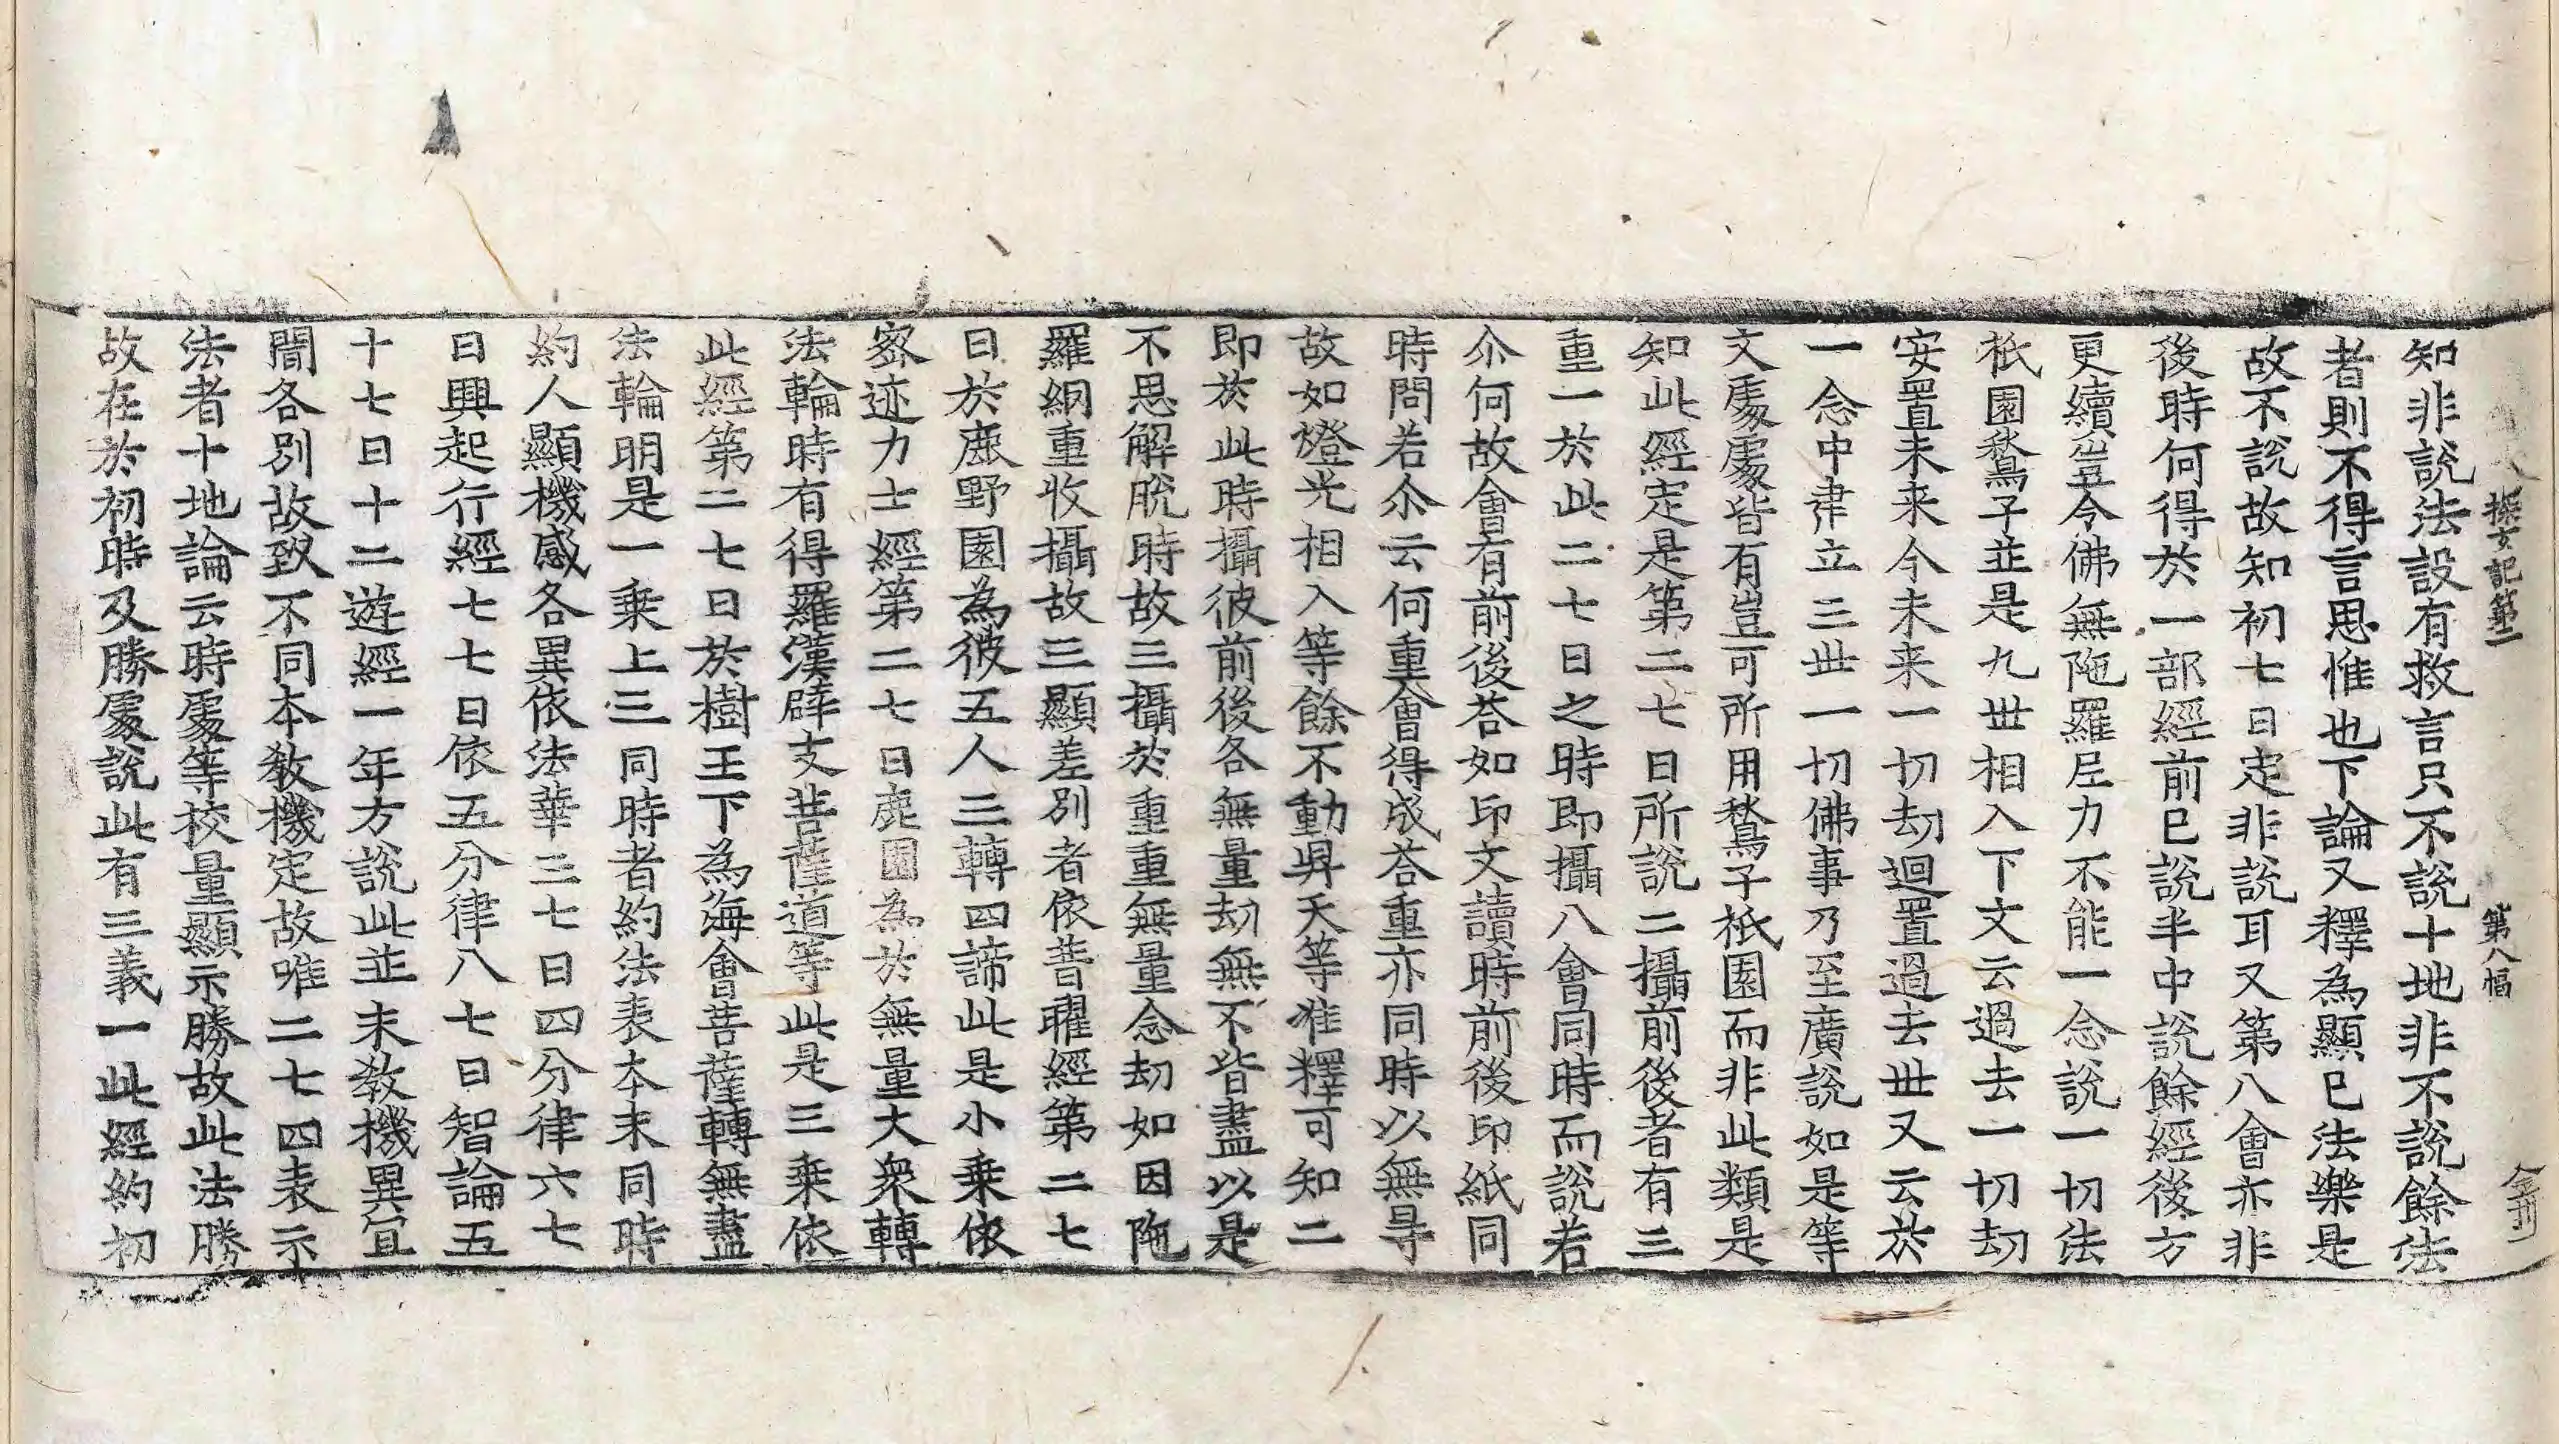 探玄記第二 第八幅 金刊
知非說法設有救言只不說十地非不說餘法
者則不得言思惟也下論又釋為顯已法樂是
故不說故知初七日定非說耳又第八會亦非
後時何得於一部經前已說半中說餘經後方
更續豈令佛無陁羅尼力不能一念說一切法
祇園鶖子並是九丗相入下文云過去一切劫
安置未来今未来一切劫迴置過去丗又云於
一念中建立三丗一切佛事乃至廣說如是等
文處處皆有豈可所用鶖子祇園而非此類是
知此經定是第二七日所說二攝前後者有三
重一於此二七日之時即攝八會同時而說若
尒何故會有前後荅如印文讀時前後印紙同
時問若尒云何重會得成荅重亦同時以無㝵
故如燈光相入等餘不動昇天等准釋可知二
即於此時攝彼前後各無量劫無不皆盡以是
不思解脫時故三攝於重重無量念劫如因陁
羅網重收攝故三顯差別者依普曜經第二七
日於鹿野園為彼五人三轉四諦此是小乗依
宻迹力士經第二七日鹿園為於無量大衆轉
法輪時有得羅漢辟支菩薩道等此是三乗依
此經第二七日於樹王下為海會菩薩轉無盡
法輪明是一乗上三同時者約法表本末同時
約人顯機感各異依法華三七日四分律六七
日興起行經七七日依五分律八七日智論五
十七日十二遊經一年方說此並末教機異冝
閒各別故致不同本教機定故唯二七四表示
法者十地論云時處等校量顯示勝故此法勝
故在於初時及勝處說此有三義一此經約初